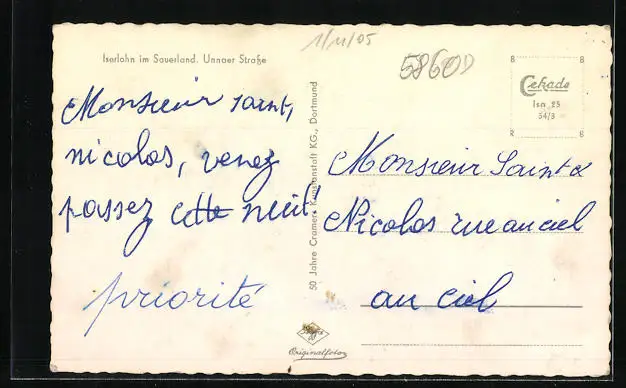 1/11/05
58600
Iserlohn im Sauerland. Unnaer Straße
Cekade
Isn 25
54/3
Monsieur saint,
nicolas, venez
passez cette nuit
priorité
50 Jahre Cramers Kunstanstalt KG., Dortmund
Monsieur Saint &
Nicolas rue au ciel
au ciel
Originalfoto